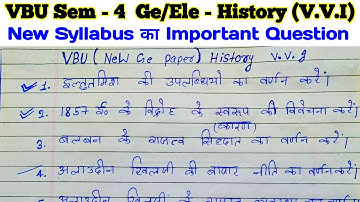 VBU Sem - 4 Ge/Ele - History (V.V.I)
New Syllabus का Important Question
VBU (New Ge paper) History V.V.I
1. इल्तुतमिश की उपलब्धियों का वर्णन करें।
2. 1857 ई० के विद्रोह के स्वरूप की विवेचना करें।
(कारण)
3. बलबन के राजत्व सिद्धांत का वर्णन करें।
4. अलाउद्दीन खिलजी की बाजार नीति का वर्णन करें।